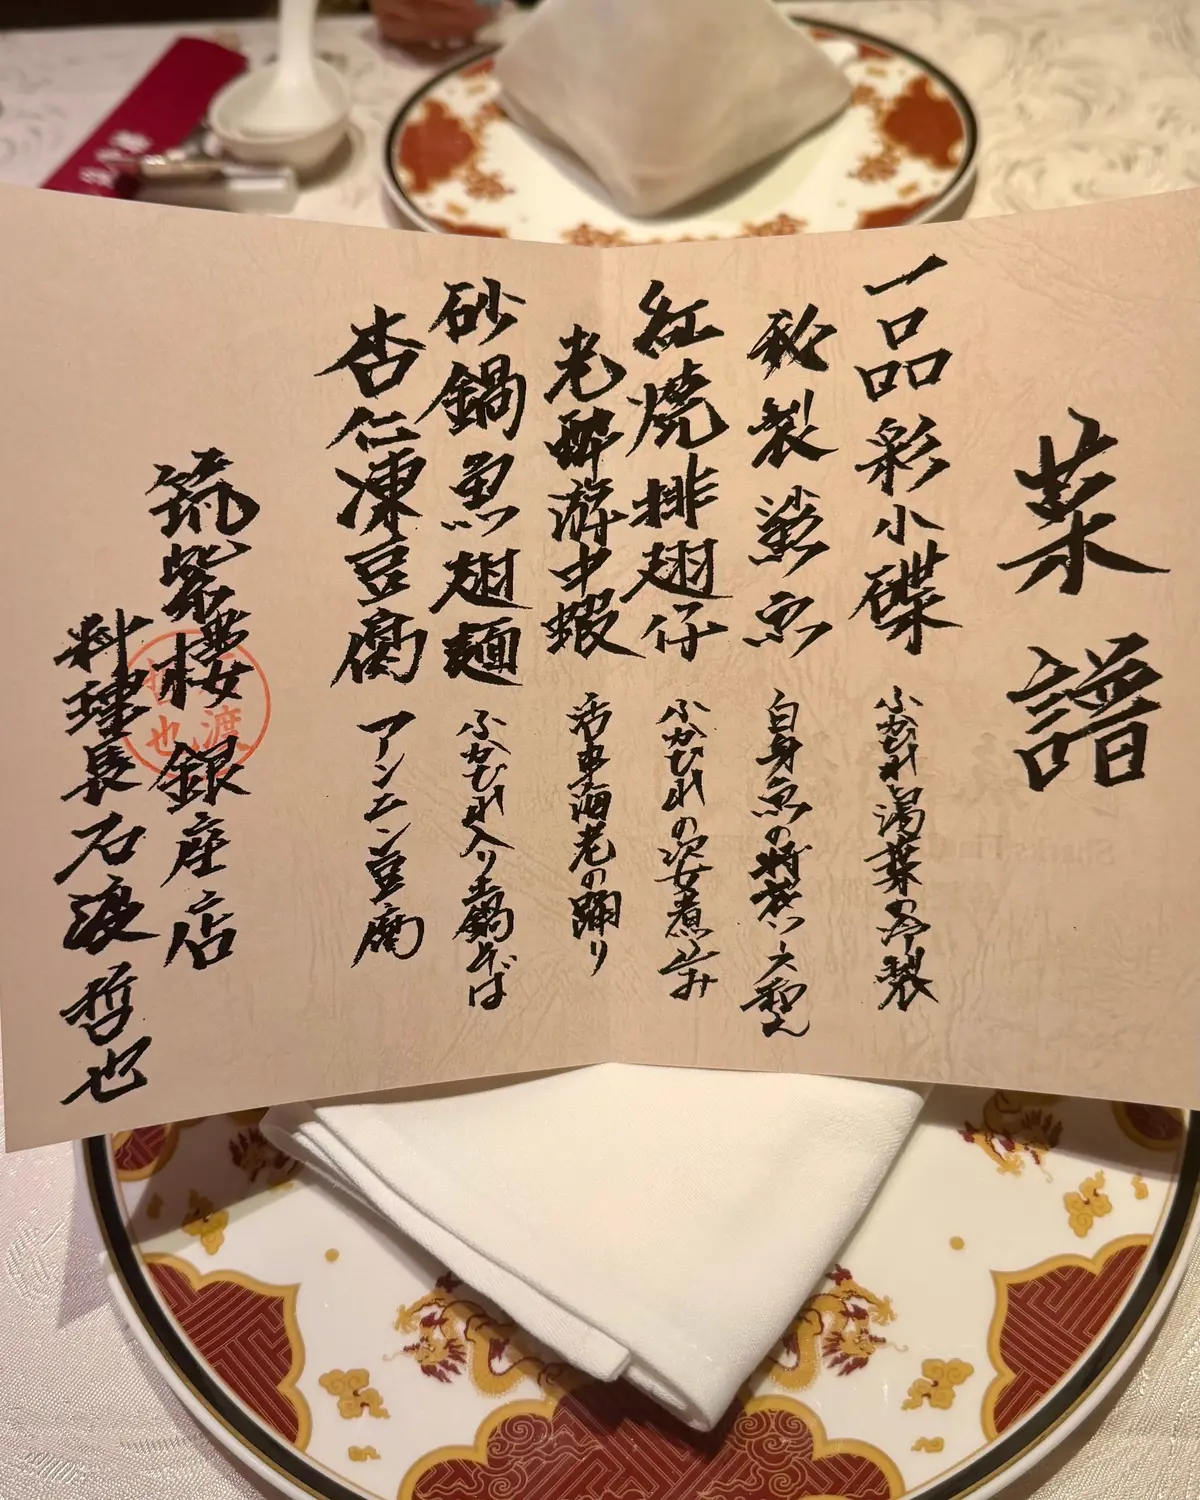 菜譜
一品彩小碟 ふかひれ湯葉の冷製
秘製鯊魚 白身魚の特製
紅燒排翅仔 ふかひれの姿煮込み
老酔游中蝦 活車海老の踊り
砂鍋魚翅麺 ふかひれ入り土鍋そば
杏仁凍豆腐 アンニン豆腐
筑紫樓 銀座店
料理長 石渡哲也